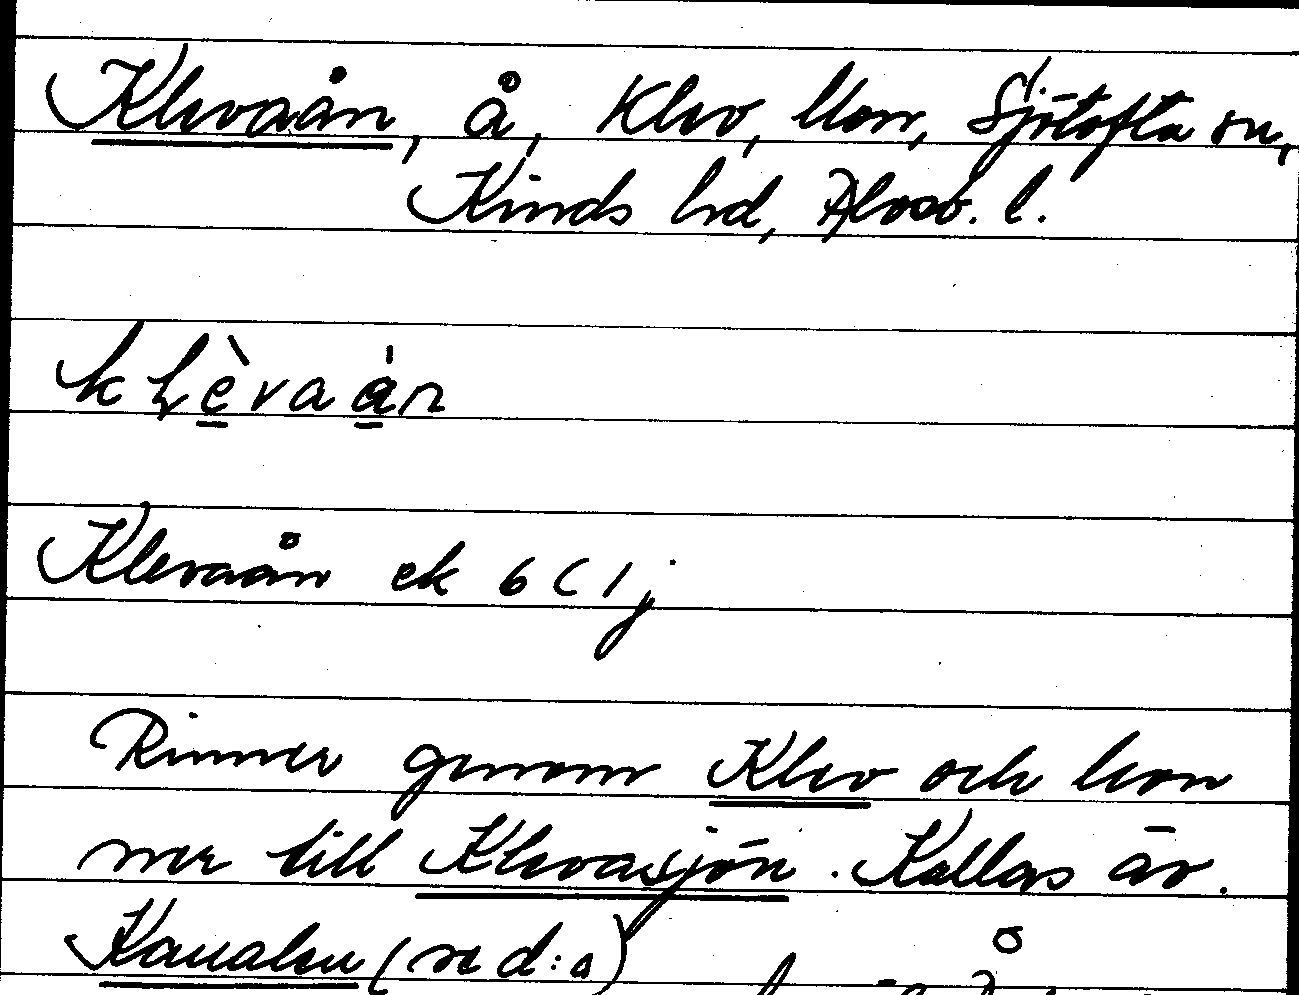 Klevaån, å, Klev, Mon, Sjötofta sn,
Kinds hd, Älvsb. l.
klèvaån
Klevaån ek 6 C 1 j
Rinner genom Klev och kom
mer till Klevasjön. Kallas äv.
Kanalen (se d:o)